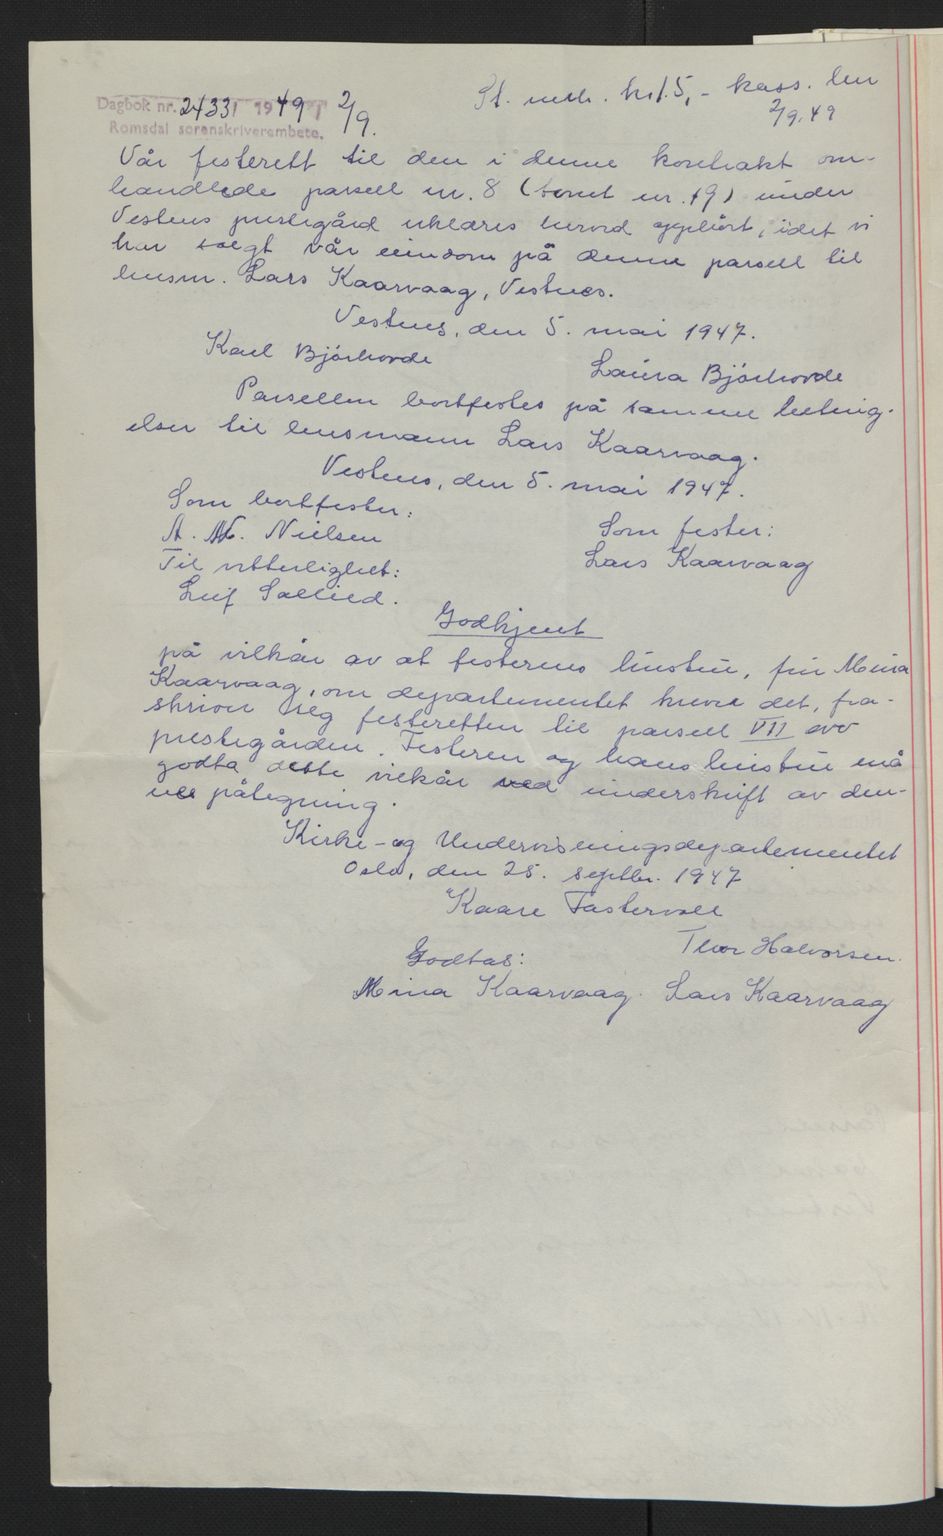 Dagbok nr. 2433 1949 2/9.
Romsdal sorenskriverembete.
St. merk. kr. 15,- kass. len
2/9.49
Vår festerett til den i denne kontrakt om-
handlede parsell nr. 8 (tomt nr. 19) under
Vestnes prestegård erklæres herved opphørt, idet vi
har solgt vår eiendom på denne parsell til
lensm. Lars Kaarvaag, Vestnes.
Vestnes, den 5. mai 1947.
Karl Bjórhovde
Laura Bjórhovde
Parsellen bortfestes på samme beting-
elser til lensmann Lars Kaarvaag.
Vestnes, den 5. mai 1947.
Som bortfester:
A. N. Nielsen
Som fester:
Lars Kaarvaag
Til vitterlighet:
Leif Sollied.
Godkjent
på vilkår av at festerens hustru, fru Mina
Kaarvaag, om departementet krever det, fra-
skriver seg festeretten til parsell VII av
prestegården. Festeren og hans hustru må
godta dette vilkår ved underskrift av den-
ne påtegning.
Kirke- og Undervisningsdepartementet
Oslo, den 25. septbr. 1947
Kaare Fostervoll
Thor Halvorsen.
Godtas:
Mina Kaarvaag. Lars Kaarvaag